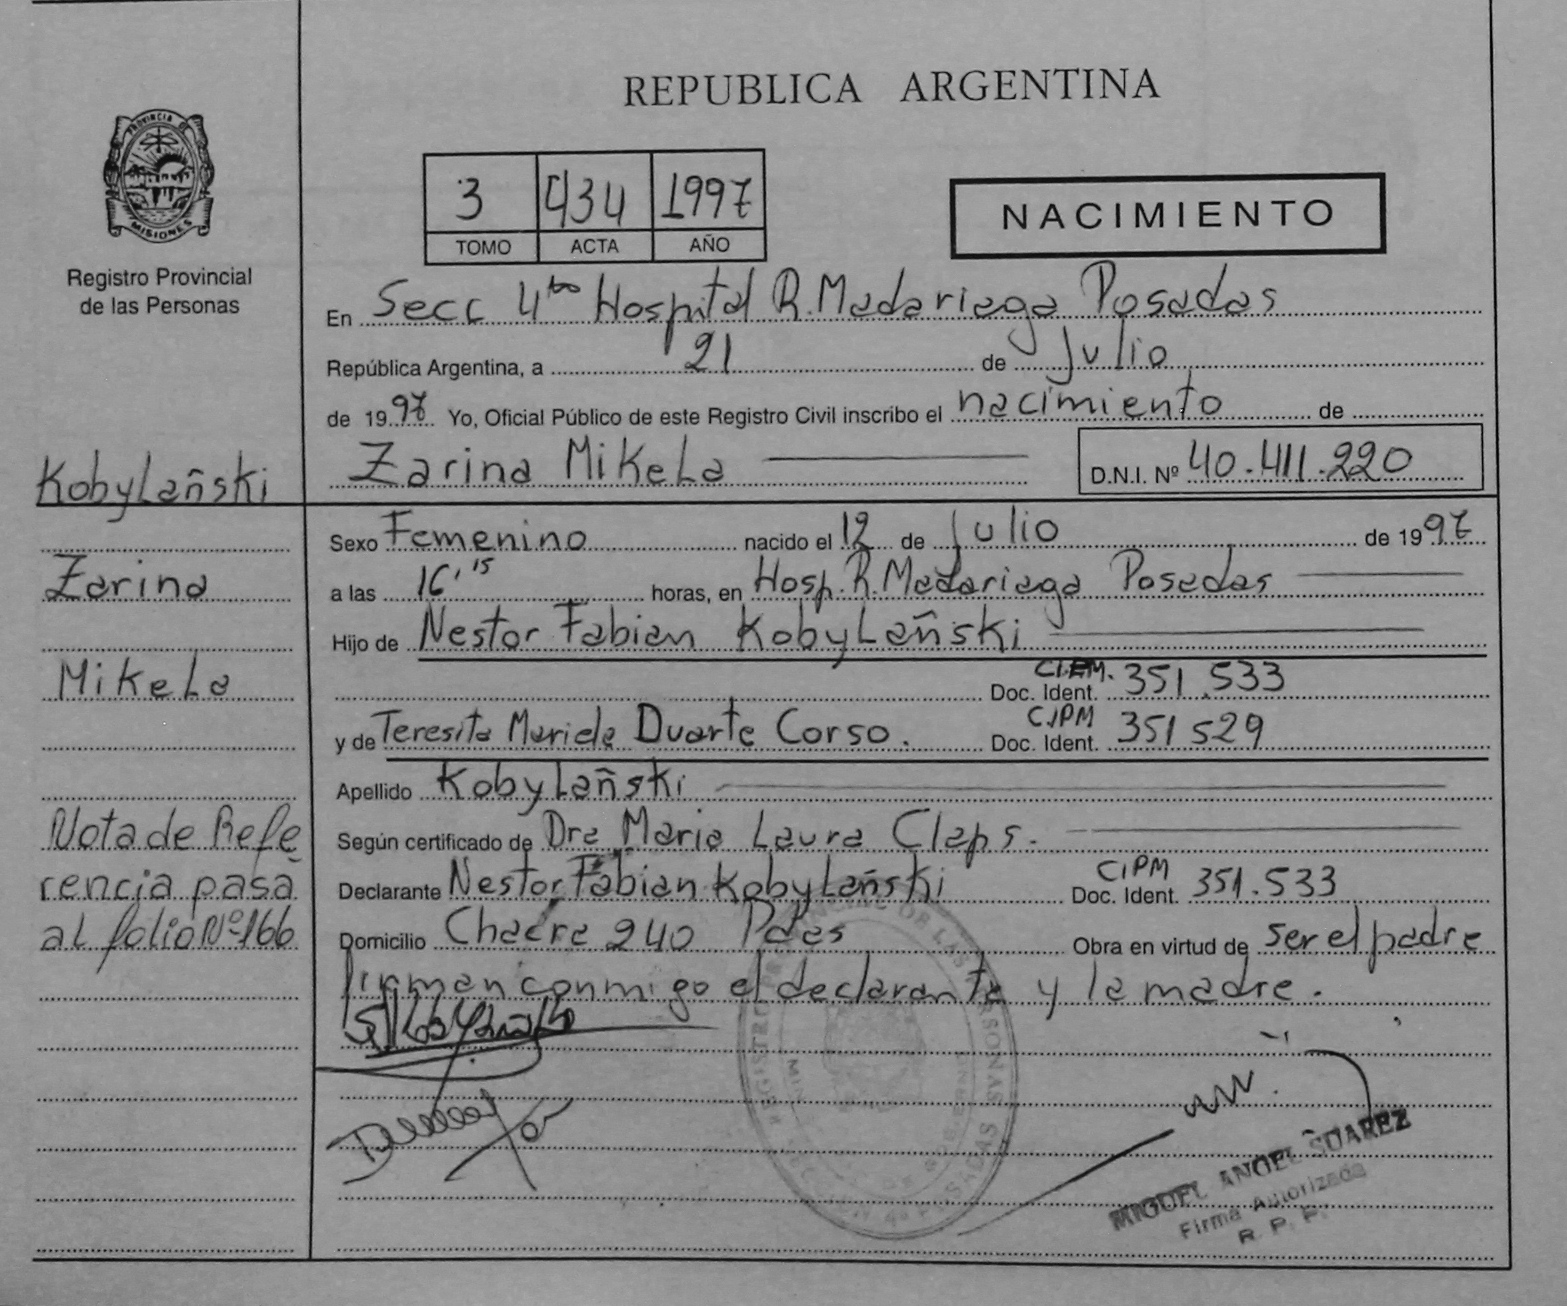 REPUBLICA ARGENTINA
PROVINCIA DE
MISIONES
Registro Provincial
de las Personas
3 434 1997
TOMO ACTA AÑO
NACIMIENTO
En Secc 4ta Hospital R. Madariaga Posadas
República Argentina, a 21 de Julio
de 1997 Yo, Oficial Público de este Registro Civil inscribo el nacimiento de
Zarina Mikela D.N.I. Nº 40.411.220
Kobylañski
Zarina
Mikela
Nota de Refe
rencia pasa
al folio Nº 166
Sexo Femenino nacido el 12 de Julio de 1997
a las 16,15 horas, en Hosp. R. Madariaga Posadas
Hijo de Nestor Fabian Kobylañski
Doc. Ident. 351.533
y de Teresita Mariela Duarte Corso. CIPM
Doc. Ident. 351529
Apellido Kobylañski
Según certificado de Dra Maria Laura Claps.
Declarante Nestor Fabian Kobylañski CIPM
Doc. Ident. 351.533
Domicilio Chacra 240 Pdas Obra en virtud de ser el padre
firman conmigo el declarante y la madre.
MIGUEL ANGEL SUAREZ
Firma Autorizada
R. P. P.